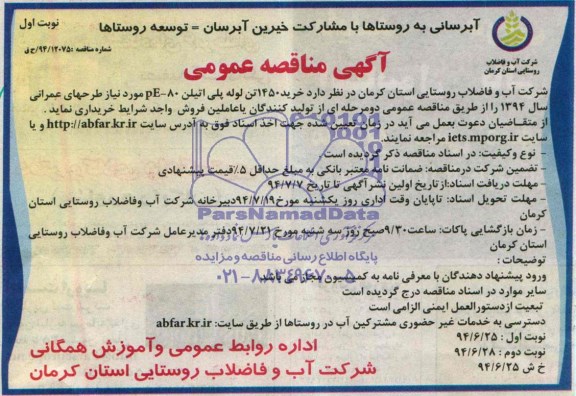 نوبت اول
آبرسانی به روستاها با مشارکت خیرین آبرسان = توسعه روستاها
شماره مناقصه :۹۴/۱۲۰۷۵/ج ق
شرکت آب و فاضلاب
روستایی استان کرمان
آگهی مناقصه عمومی
شرکت آب و فاضلاب روستایی استان کرمان در نظر دارد خرید۱۴۵۰تن لوله پلی اتیلن pE-۸۰ مورد نیاز طرحهای عمرانی
سال ۱۳۹۴ را از طریق مناقصه عمومی دومرحله ای از تولید کنندگان یاعاملین فروش واجد شرایط خریداری نماید .
از متقاضیان دعوت بعمل می آید در زمان تعیین شده جهت اخذ اسناد فوق به آدرس سایت http://abfar.kr.ir و یا
سایت iets.mporg.ir مراجعه نمایند.
- نوع وکیفیت: در اسناد مناقصه ذکر گردیده است
- تضمین شرکت درمناقصه: ضمانت نامه معتبر بانکی به مبلغ حداقل ۵٪قیمت پیشنهادی
- مهلت دریافت اسناد:از تاریخ اولین نشر آگهی تا تاریخ ۹۴/۷/۷
- مهلت تحویل اسناد: تاپایان وقت اداری روز یکشنبه مورخ۹۴/۷/۱۹دبیرخانه شرکت آب وفاضلاب روستایی استان
کرمان
- زمان بازگشایی پاکات: ساعت۹/۳۰صبح روز سه شنبه مورخ۹۴/۷/۲۱دفتر مدیرعامل شرکت آب وفاضلاب روستایی
استان کرمان
توضیحات :
ورود پیشنهاد دهندگان با معرفی نامه به کمیسیون مجاز می باشد
سایر موارد در اسناد مناقصه درج گردیده است
تبعیت ازدستورالعمل ایمنی الزامی است
دسترسی به خدمات غیر حضوری مشترکین آب در روستاها از طریق سایت: abfar.kr.ir
نوبت اول : ۹۴/۶/۲۵
نوبت دوم : ۹۴/۶/۲۸
خ ش ۹۴/۶/۲۵
اداره روابط عمومی وآموزش همگانی
شرکت آب و فاضلاب روستایی استان کرمان
ParsNamadData
پایگاه اطلاع رسانی مناقصه و مزایده
۰۲۱-۸۸۳۴۹۶۷۰-۵